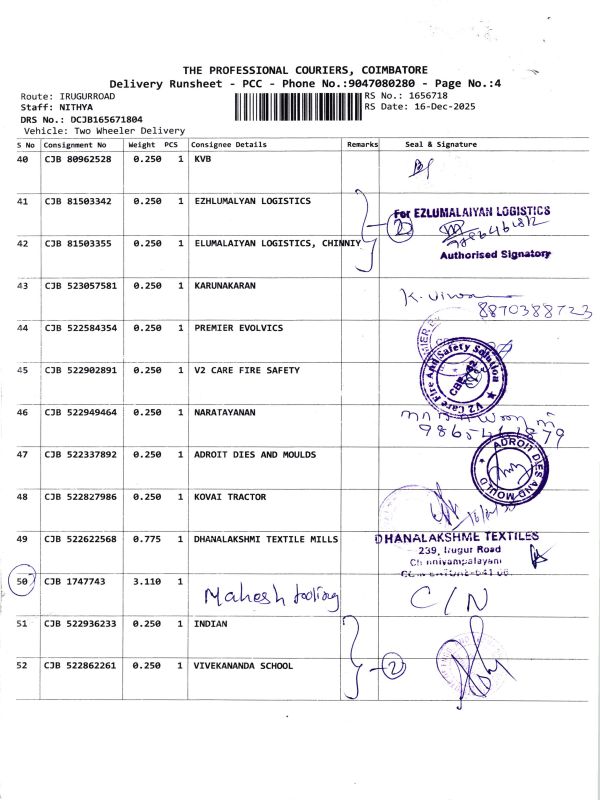 THE PROFESSIONAL COURIERS, COIMBATORE
Delivery Runsheet - PCC - Phone No.:9047080280 - Page No.:4
Route: IRUGURROAD
Staff: NITHYA
DRS No.: DCJB165671804
Vehicle: Two Wheeler Delivery
RS No.: 1656718
RS Date: 16-Dec-2025
S No Consignment No Weight PCS Consignee Details Remarks Seal & Signature
40 CJB 80962528 0.250 1 KVB
41 CJB 81503342 0.250 1 EZHLUMALYAN LOGISTICS
For EZLUMALAIYAN LOGISTICS
2
42 CJB 81503355 0.250 1 ELUMALAIYAN LOGISTICS, CHINNIY
Authorised Signatory
43 CJB 523057581 0.250 1 KARUNAKARAN
8870388723
44 CJB 522584354 0.250 1 PREMIER EVOLVICS
45 CJB 522902891 0.250 1 V2 CARE FIRE SAFETY
V2 Care Fire And Safety Solution
46 CJB 522949464 0.250 1 NARATAYANAN
47 CJB 522337892 0.250 1 ADROIT DIES AND MOULDS
ADROIT DIES AND MOULD
48 CJB 522827986 0.250 1 KOVAI TRACTOR
49 CJB 522622568 0.775 1 DHANALAKSHMI TEXTILE MILLS
DHANALAKSHME TEXTILES
239, Irugur Road
Chinniyampalayam
50 CJB 1747743 3.110 1
Mahesh tooling
C/N
51 CJB 522936233 0.250 1 INDIAN
52 CJB 522862261 0.250 1 VIVEKANANDA SCHOOL
2